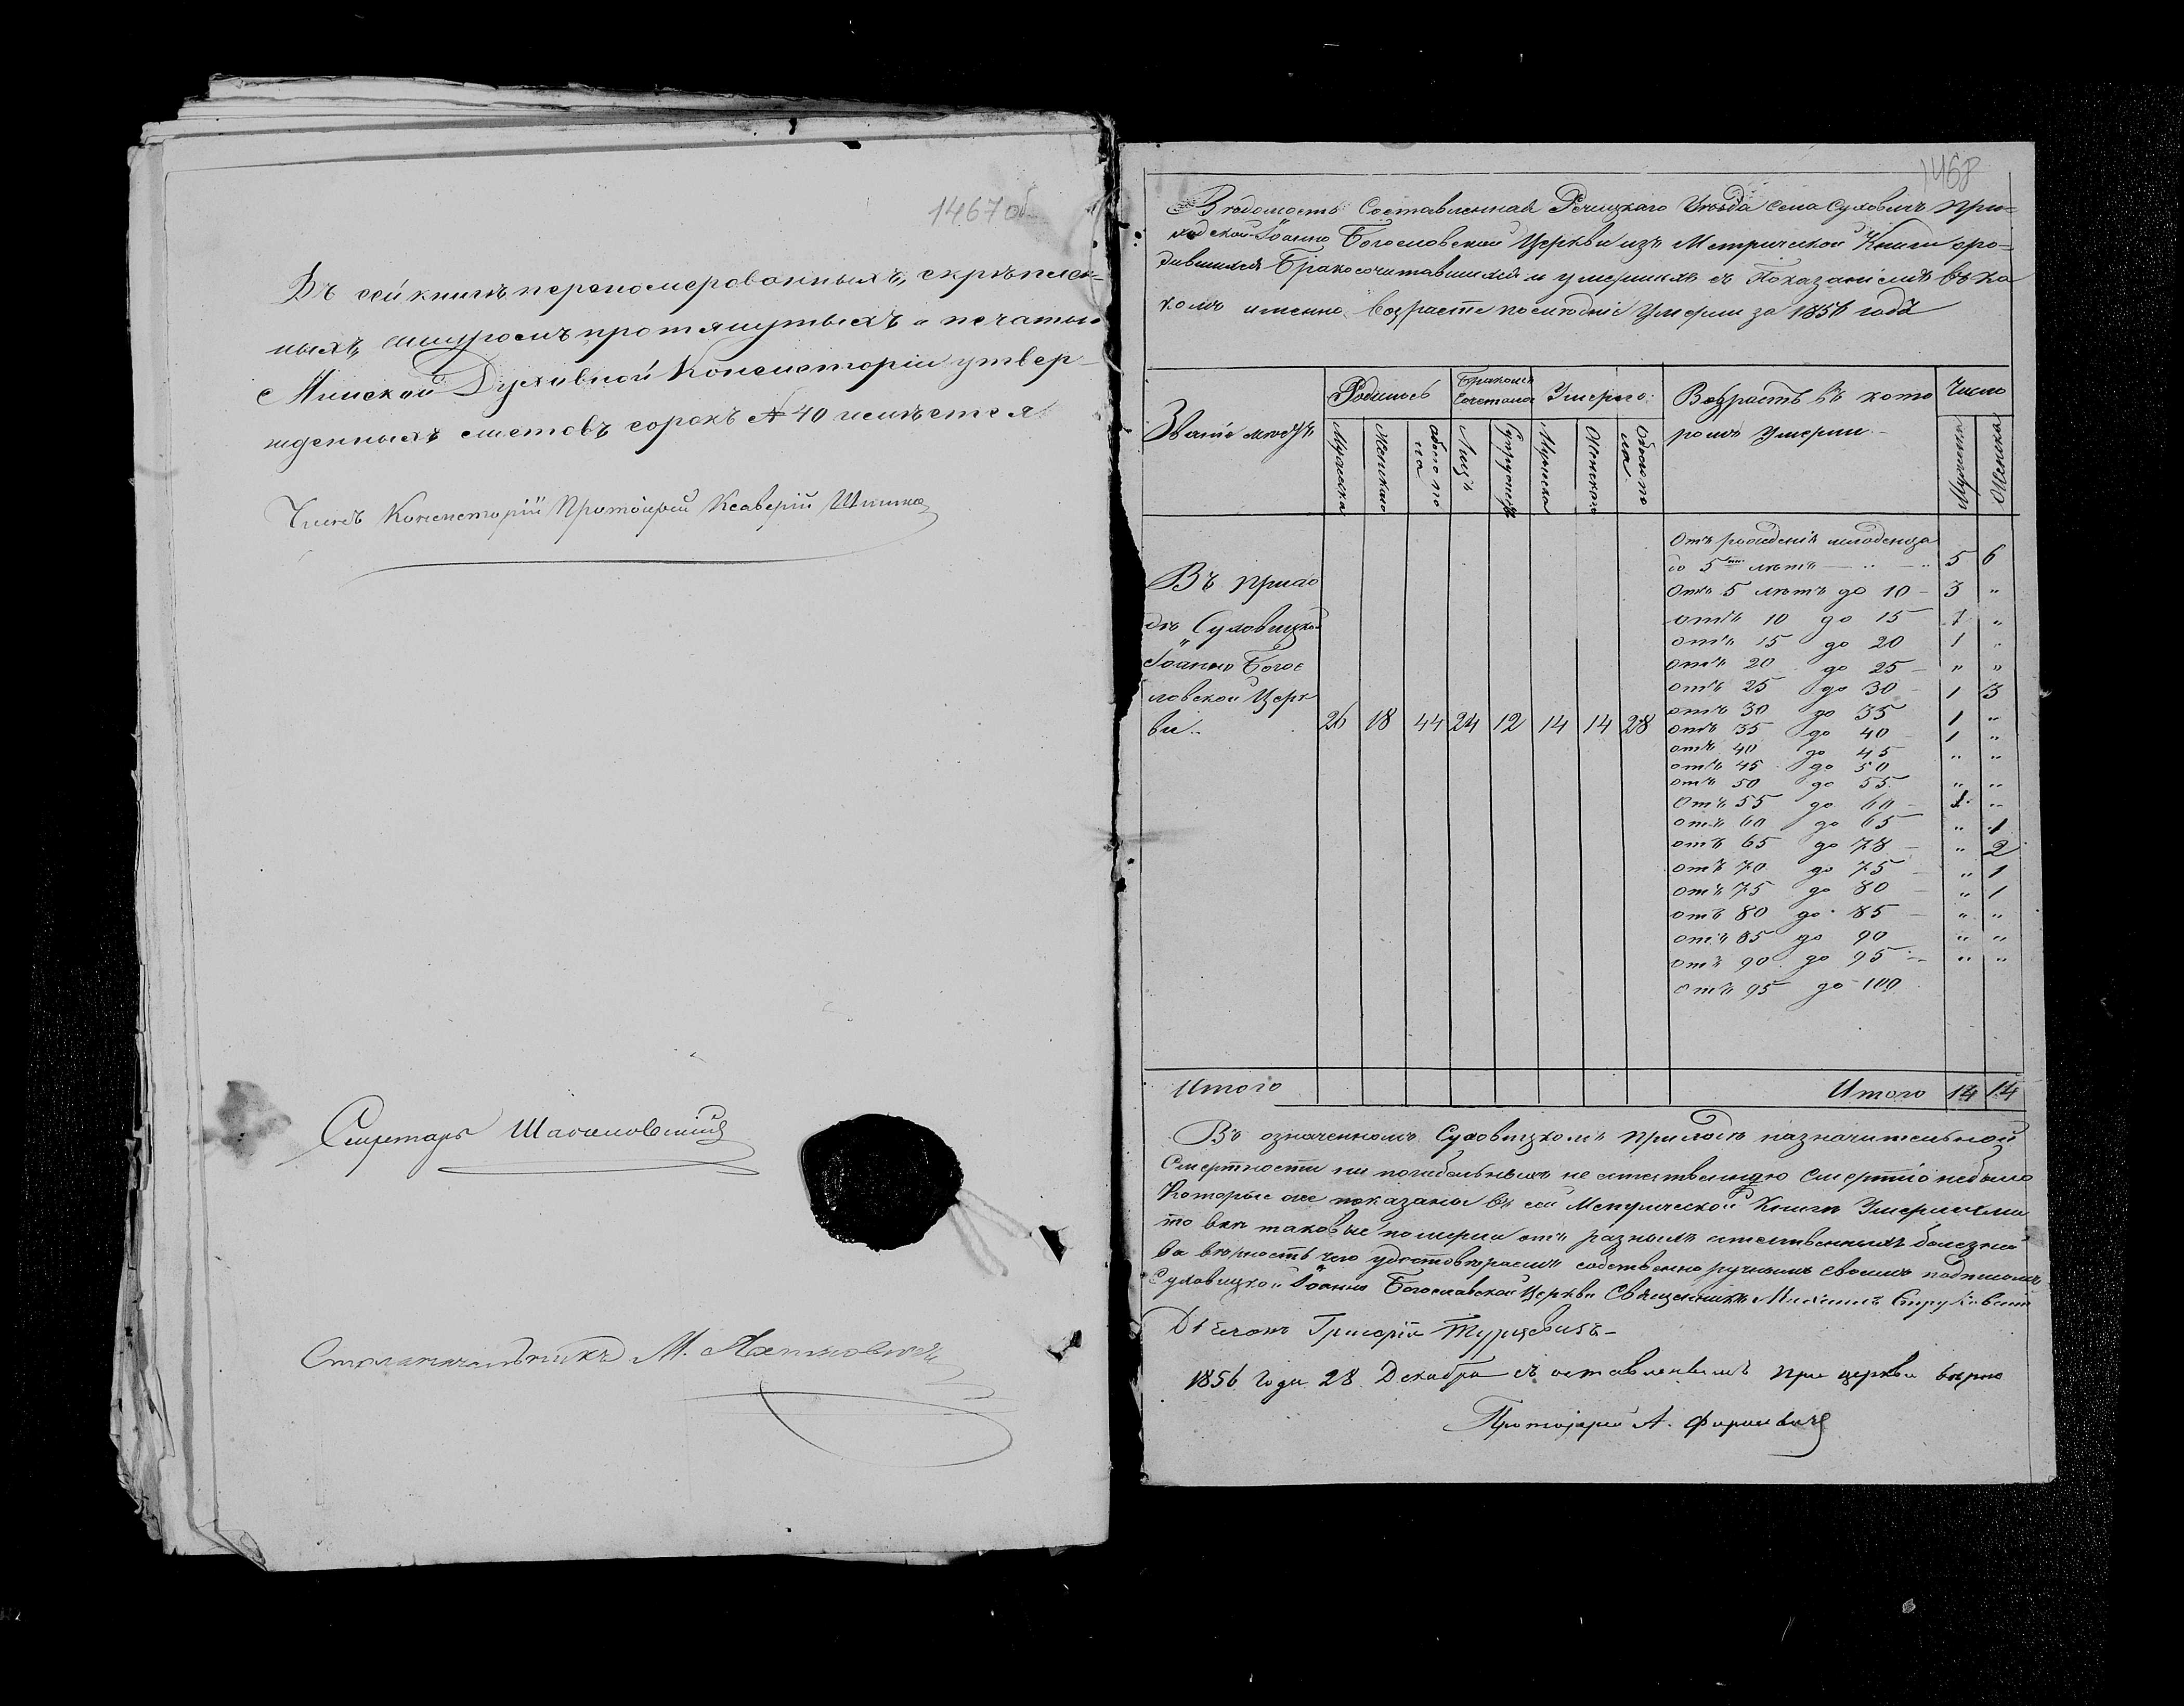 1467 об.
Въ сей книгѣ переномерованныхъ, скрѣплен-
ныхъ, шнуромъ протянутыхъ и печатью
Минской Духовной Консисторіи утвер-
жденныхъ листовъ сорокъ № 40 имѣется
Членъ Консисторіи Протоіерей Ксаверій
Секретарь
Столоначальникъ М.
1468
Вѣдомость Составленная Рѣчицкаго Уѣзда села Суховичъ При-
ходской Іоанно Богословской Церкви изъ Метрической Книги о ро-
дившихся Бракосочитавшихся и умершихъ съ Показаніемъ въ ка
комъ именно возрастѣ послѣдніе Умерли за 1856 годъ
Званіе мѣстъ
Родилось
Бракомъ Сочеталось
Умерло
Возрастъ въ кото
ромъ Умерли
Число
Мужеска
Женскаго
обоего по
ла
Лицъ
Супружествъ
Мужеска
Женскаго
Обоего по
ла
Мужеска
Женска
Въ Прихо
дѣ Суховицкой
Іоанно Богос
ловской Церк
ви..
26 18 44 24 12 14 14 28
Отъ рожденія младенца
до 5ти лѣтъ — " — " 5 6
Отъ 5 лѣтъ до 10 — 3 "
отъ 10 до 15 1 "
отъ 15 до 20 1 "
отъ 20 до 25 — " "
отъ 25 до 30 — 1 3
отъ 30 до 35 1 "
отъ 35 до 40 — 1 "
отъ 40 до 45 " "
отъ 45 до 50
отъ 50 до 55 " "
Отъ 55 до 60 — 1 "
отъ 60 до 65 " 1
отъ 65 до 78 — " 2
отъ 70 до 75 — " 1
отъ 75 до 80 — " 1
отъ 80 до 85 — " "
отъ 85 до 90 " "
отъ 90 до 95 — " "
отъ 95 до 100
Итого
Итого 14 14
Въ означенномъ Суховицкомъ Приходѣ назначительной
Смертности ни погибельныхъ не естественною смертію небыло
Которые же показаны въ сей Метрической Книгѣ Умершими
то всѣ таковые померли отъ разныхъ естественныхъ болезней
Въ вѣрность чего удостовѣряемъ собственно ручнымъ своимъ подписомъ
Суховицкой Іоанно Богославской Церкви Священникъ Михаилъ
Діаконъ Григорій Турцевичъ —
1856 Года 28 Декабря съ оставленнымъ при церкви вѣрно
Протоіерей А.